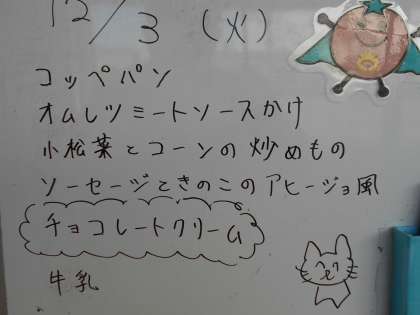 12/3 (火)
コッペパン
オムレツミートソースかけ
小松菜とコーンの炒めもの
ソーセージときのこのアヒージョ風
チョコレートクリーム
牛乳